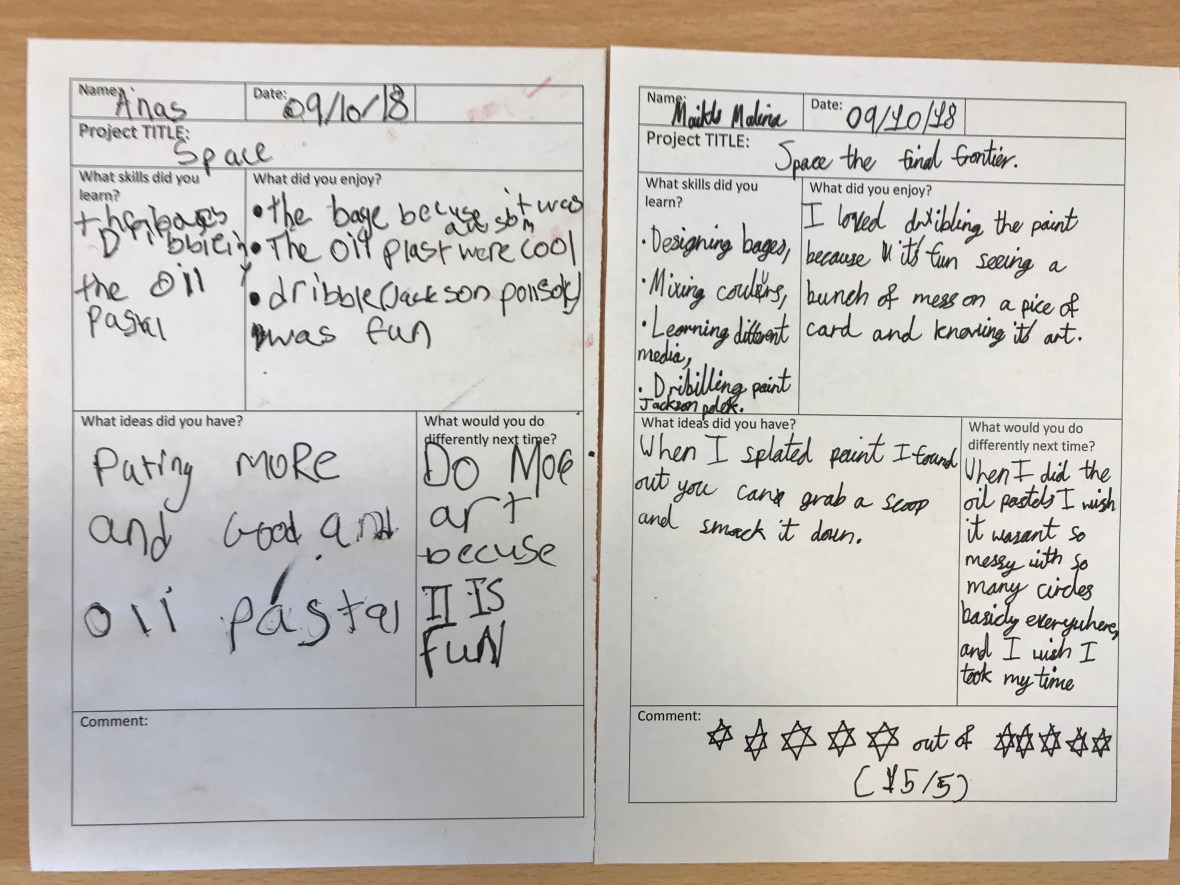 Name: Anas
Date: 09/10/18
Project TITLE:
Space
What skills did you
learn?
the bages
Dribblein
the Oill
Pastal
What did you enjoy?
• the bage becuse it was
awe som
• The Oil plast were cool
• dribble (Jackson pollsok)
was fun
What ideas did you have?
Puting MORe
and Good and
oili pastal
What would you do
differently next time?
DO MOe
art
becuse
IT IS
FUN
Comment:
Name: Malina
Date: 09/10/18
Project TITLE:
Space the final frontier.
What skills did you
learn?
· Designing bages,
· Mixing coulers,
· Learning different
media,
· Dribilling paint
Jackson polek.
What did you enjoy?
I loved dribling the paint
because it's fun seeing a
bunch of mess on a pice of
card and knowing it's art.
What ideas did you have?
When I splated paint I found
out you can grab a scoop
and smack it down.
What would you do
differently next time?
When I did the
oil pastels I wish
it wasant so
messy with so
many circles
basicly everywhere,
and I wish I
took my time
Comment:
✡ ✡ ✡ ✡ ✡ out of ✡✡✡✡✡
(5/5)